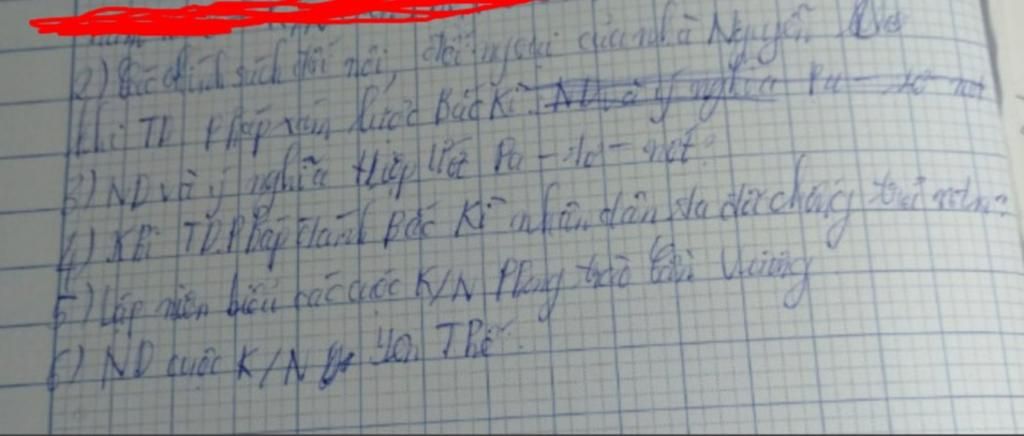 2) Các chính sách đối nội, đối ngoại của nhà Nguyễn
khi TD Pháp xâm lược Bắc Kì. ND và ý nghĩa Pa - tơ nốt
3) ND và ý nghĩa Hiệp ước Pa - tơ - nốt?
4) Khi TD Pháp đánh Bắc Kì nhân dân ta đã chống trả ntn?
5) Lập niên biểu các cuộc K/N Phong trào Cần Vương
6) ND cuộc K/N Yên Thế.